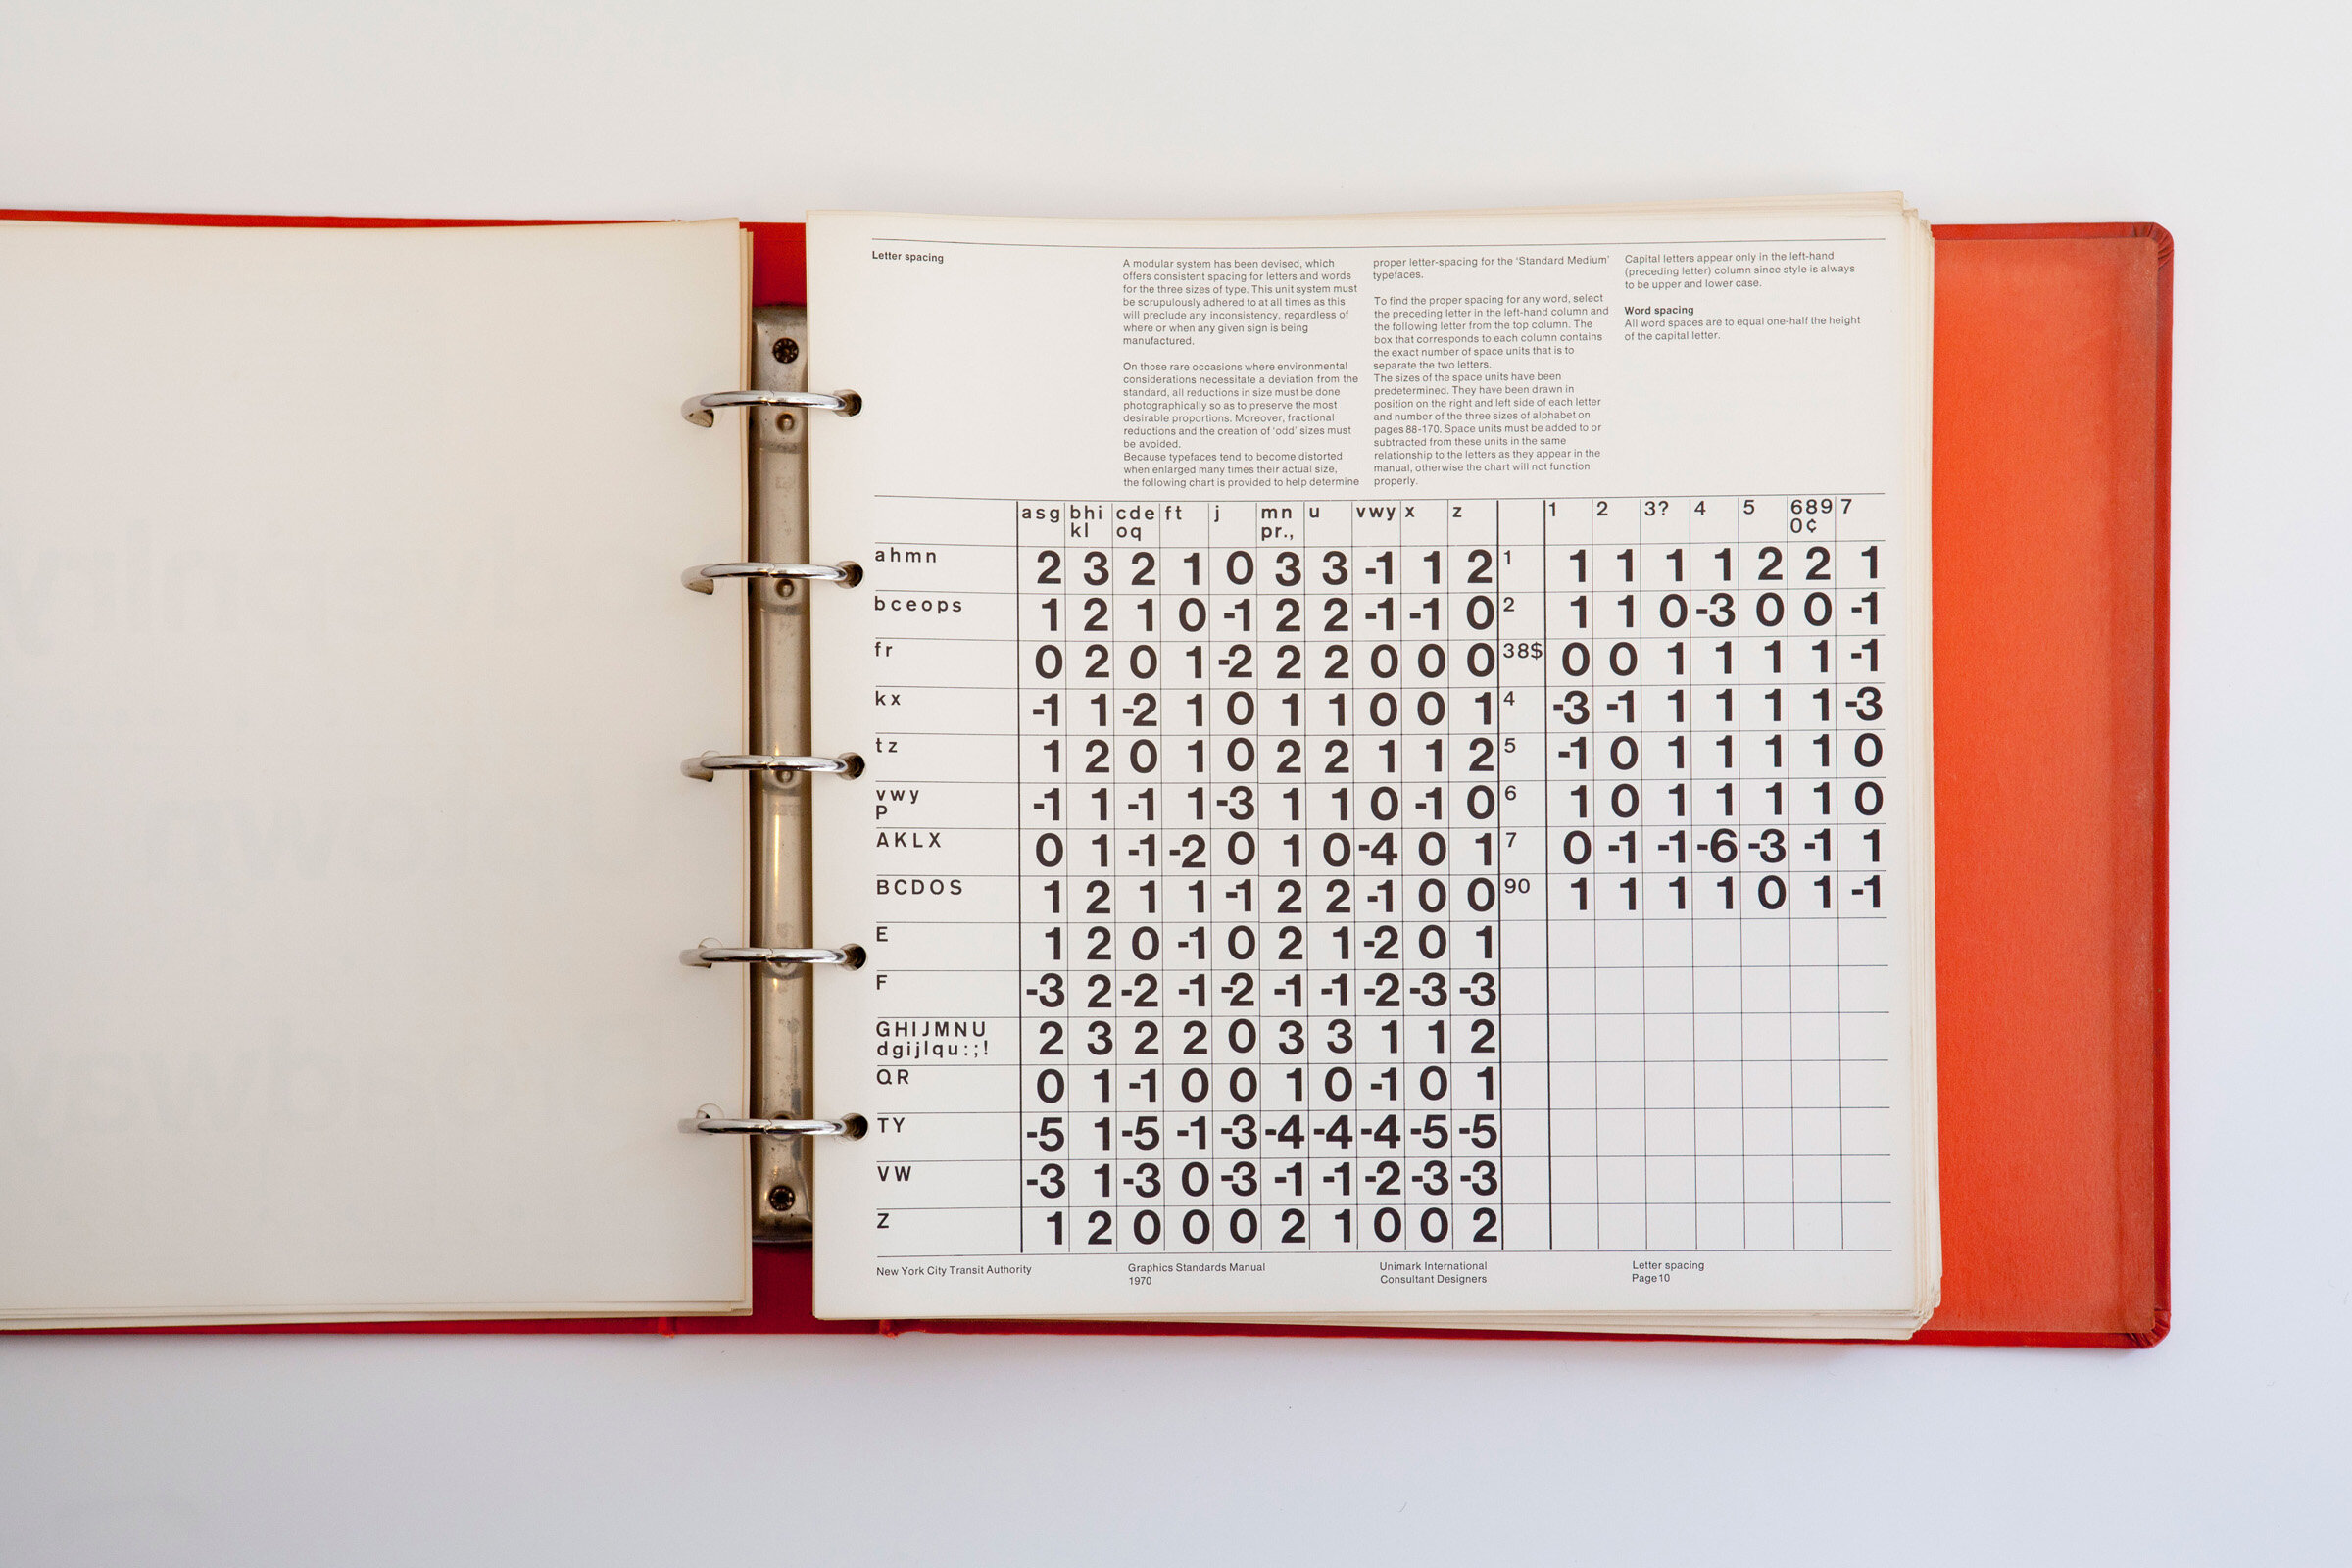 Letter spacing
A modular system has been devised, which
offers consistent spacing for letters and words
for the three sizes of type. This unit system must
be scrupulously adhered to at all times as this
will preclude any inconsistency, regardless of
where or when any given sign is being
manufactured.
On those rare occasions where environmental
considerations necessitate a deviation from the
standard, all reductions in size must be done
photographically so as to preserve the most
desirable proportions. Moreover, fractional
reductions and the creation of 'odd' sizes must
be avoided.
Because typefaces tend to become distorted
when enlarged many times their actual size,
the following chart is provided to help determine
proper letter-spacing for the 'Standard Medium'
typefaces.
To find the proper spacing for any word, select
the preceding letter in the left-hand column and
the following letter from the top column. The
box that corresponds to each column contains
the exact number of space units that is to
separate the two letters.
The sizes of the space units have been
predetermined. They have been drawn in
position on the right and left side of each letter
and number of the three sizes of alphabet on
pages 88-170. Space units must be added to or
subtracted from these units in the same
relationship to the letters as they appear in the
manual, otherwise the chart will not function
properly.
Capital letters appear only in the left-hand
(preceding letter) column since style is always
to be upper and lower case.
Word spacing
All word spaces are to equal one-half the height
of the capital letter.
asg bhi cde ft j mn u vwy x z 1 2 3? 4 5 689 7
kl oq pr., 0¢
ahmn 2 3 2 1 0 3 3 -1 1 2 1 1 1 1 1 2 2 1
bceops 1 2 1 0 -1 2 2 -1 -1 0 2 1 1 0 -3 0 0 -1
fr 0 2 0 1 -2 2 2 0 0 0 38$ 0 0 1 1 1 1 -1
kx -1 1 -2 1 0 1 1 0 0 1 4 -3 -1 1 1 1 1 -3
tz 1 2 0 1 0 2 2 1 1 2 5 -1 0 1 1 1 1 0
vwy
P -1 1 -1 1 -3 1 1 0 -1 0 6 1 0 1 1 1 1 0
AKLX 0 1 -1 -2 0 1 0 -4 0 1 7 0 -1 -1 -6 -3 -1 1
BCDOS 1 2 1 1 -1 2 2 -1 0 0 90 1 1 1 1 0 1 -1
E 1 2 0 -1 0 2 1 -2 0 1
F -3 2 -2 -1 -2 -1 -1 -2 -3 -3
GHIJMNU
dgijlqu:;! 2 3 2 2 0 3 3 1 1 2
QR 0 1 -1 0 0 1 0 -1 0 1
TY -5 1 -5 -1 -3 -4 -4 -4 -5 -5
VW -3 1 -3 0 -3 -1 -1 -2 -3 -3
Z 1 2 0 0 0 2 1 0 0 2
New York City Transit Authority
Graphics Standards Manual
1970
Unimark International
Consultant Designers
Letter spacing
Page 10